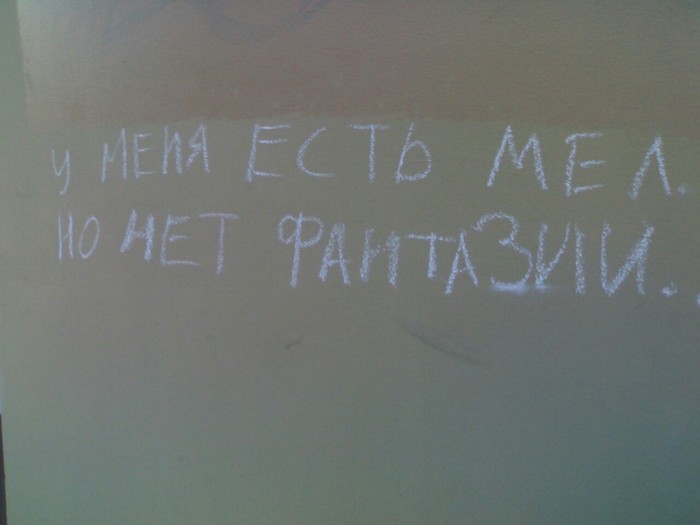 у МЕНЯ ЕСТЬ МЕЛ.
НО НЕТ ФАНТАЗИИ..